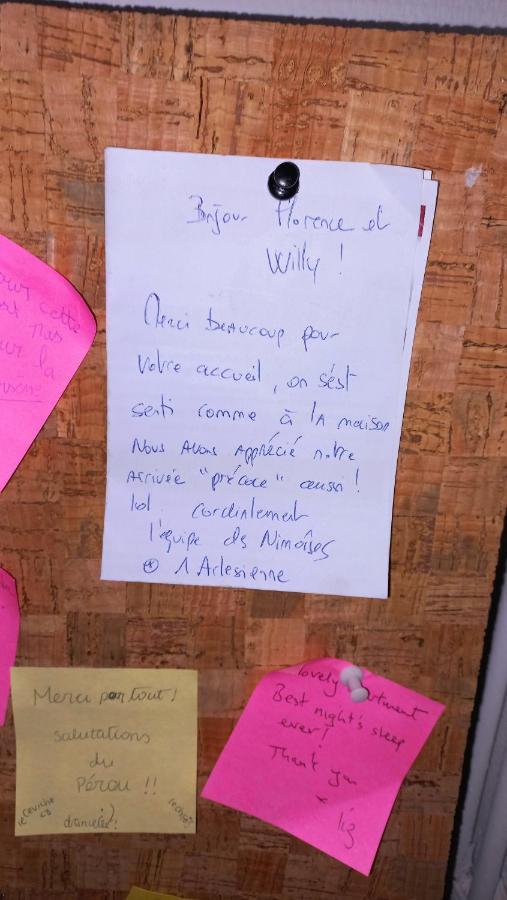 Bonjour Florence et
Willy !
Merci beaucoup pour
votre accueil, on s'est
senti comme à la maison
Nous avons apprécié notre
arrivée "précoce" aussi !
lol. cordialement
l'équipe des Nîmoises
⊕ 1 Arlesienne
cette
pas
sur la
Merci partout !
salutations
du
Pérou !!
le ceviche
lovely
Best night's sleep
ever!
Thank you
x Liz